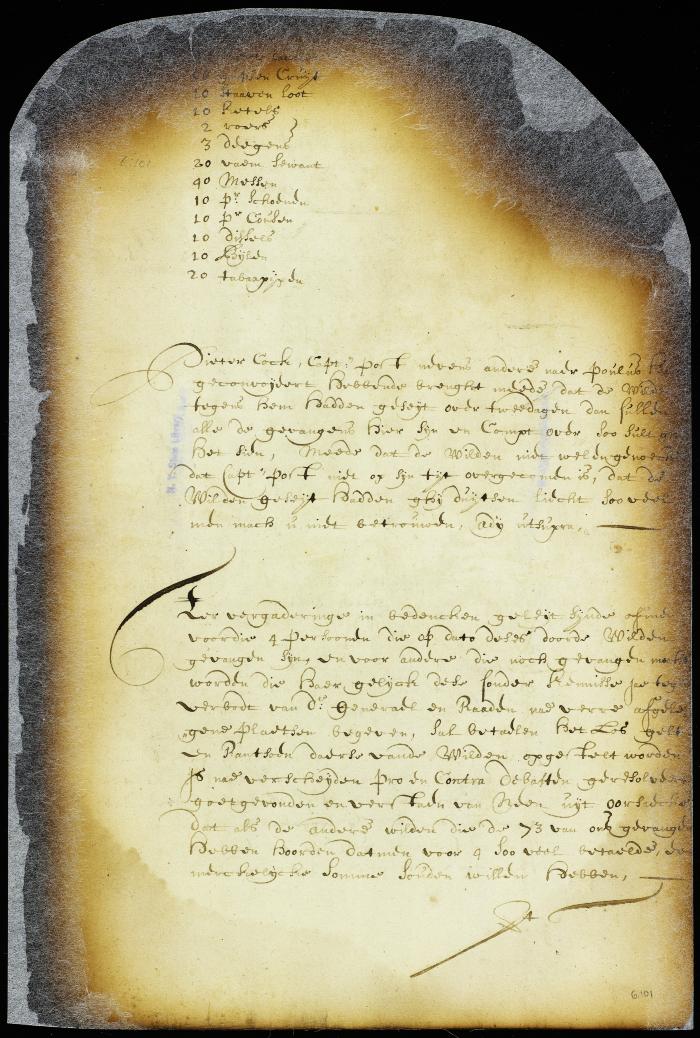 ponden Cruijt
10 staaven loot
10 Ketels
2 roers
3 deegens
20 vaem sewant
40 Messen
10 pr. schoenen
10 pr Cousen
10 dissels
10 Bijlen
20 tabaxpijpen
6:101
Pieter Cock, Capt: post nevens andere naer Poulus
geconvoijeert hebbende brenght meede dat de Wilde
tegens hem hadden geseijt over tweedagen dan sullen
alle de gevangens hier sijn en Compt over soo sult
het sien, Meede dat de Wilden niet wel den genoegen
dat Capt: Post niet op sijn tijt overgecomen is, dat de
Wilden geseijt hadden ghij duijtsen liecht soo veel
men mach u niet betrouwen, Ady utsupra,
Ter vergaderinge in bedencken geleijt sijnde
voor die 4 persoonen die op dato deses door de Wilden
gevangen sijn, en voor andere die noch gevangen
worden die haer gelyck dese sonder kennisse jae
verbodt van Dr. Generael en Raaden nae verre
gene plaetsen begeven, sal betaelen het Los gelt
en Rantsoen daerse vande Wilden, opgestelt worden
Is nae verscheijden Pro en Contra debatten geresolveert
goetgevonden en verstaen van Neen uijt oorsaecke
dat als de andere wilden die de 73 van ons gevangen
hebben hoorden datmen voor 4 soo veel betaelde,
merckelijcke somme souden willen hebben,
6:101